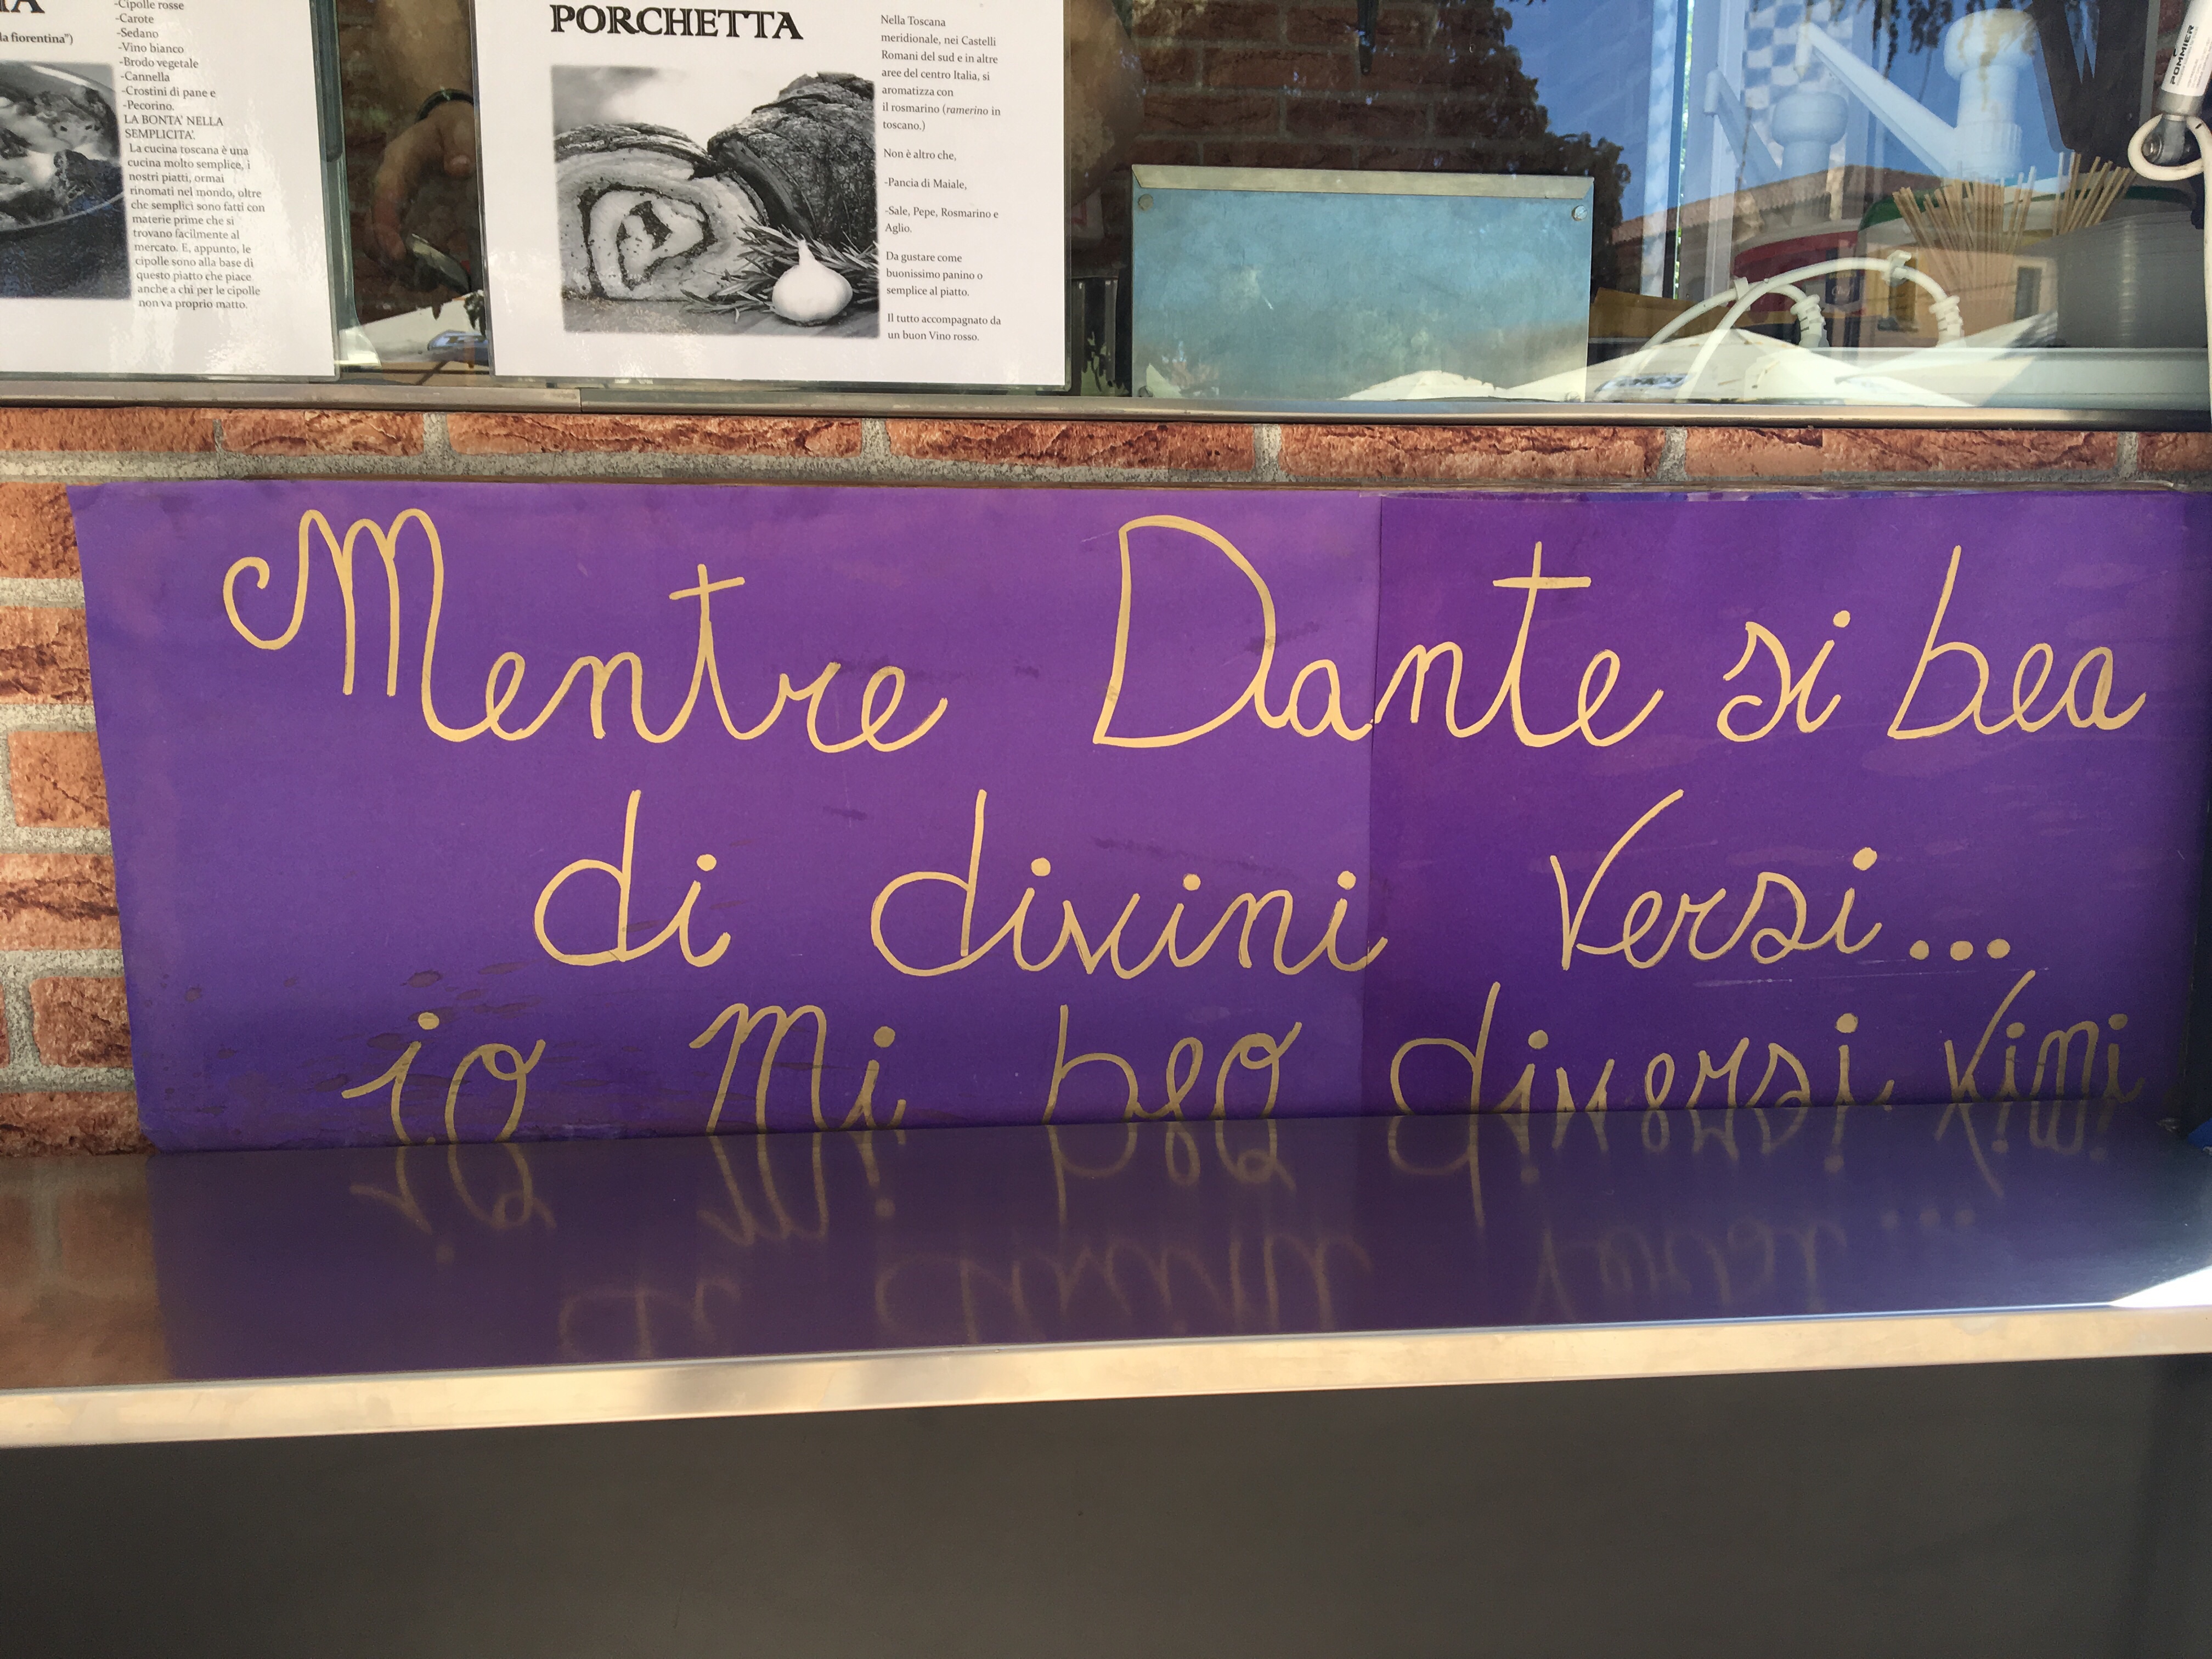 IA
la fiorentina")
-Cipolle rosse
-Carote
-Sedano
-Vino bianco
-Brodo vegetale
-Cannella
-Crostini di pane e
-Pecorino.
LA BONTA' NELLA
SEMPLICITA'.
La cucina toscana è una
cucina molto semplice, i
nostri piatti, ormai
rinomati nel mondo, oltre
che semplici sono fatti con
materie prime che si
trovano facilmente al
mercato. E, appunto, le
cipolle sono alla base di
questo piatto che piace
anche a chi per le cipolle
non va proprio matto.
PORCHETTA
Nella Toscana
meridionale, nei Castelli
Romani del sud e in altre
aree del centro Italia, si
aromatizza con
il rosmarino (ramerino in
toscano.)
Non è altro che,
-Pancia di Maiale,
-Sale, Pepe, Rosmarino e
Aglio.
Da gustare come
buonissimo panino o
semplice al piatto.
Il tutto accompagnato da
un buon Vino rosso.
POMMIER
Mentre Dante si bea
di divini Versi...
io Mi beo diversi Vini